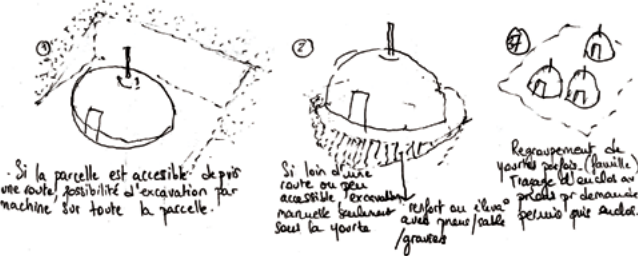 ①
- Si la parcelle est accesible depuis
une route, possibilité d'excavation par
machine sur toute la parcelle.
②
Si loin d'une
route ou peu
accessible, excavation
manuelle seulement
sous la yourte
renfort ou élévaº
avec pneus/sable
/graviers
Regroupement de
yourtes parfois. (famille)
Traçage d'enclos au
pr demande
permis puis enclos.